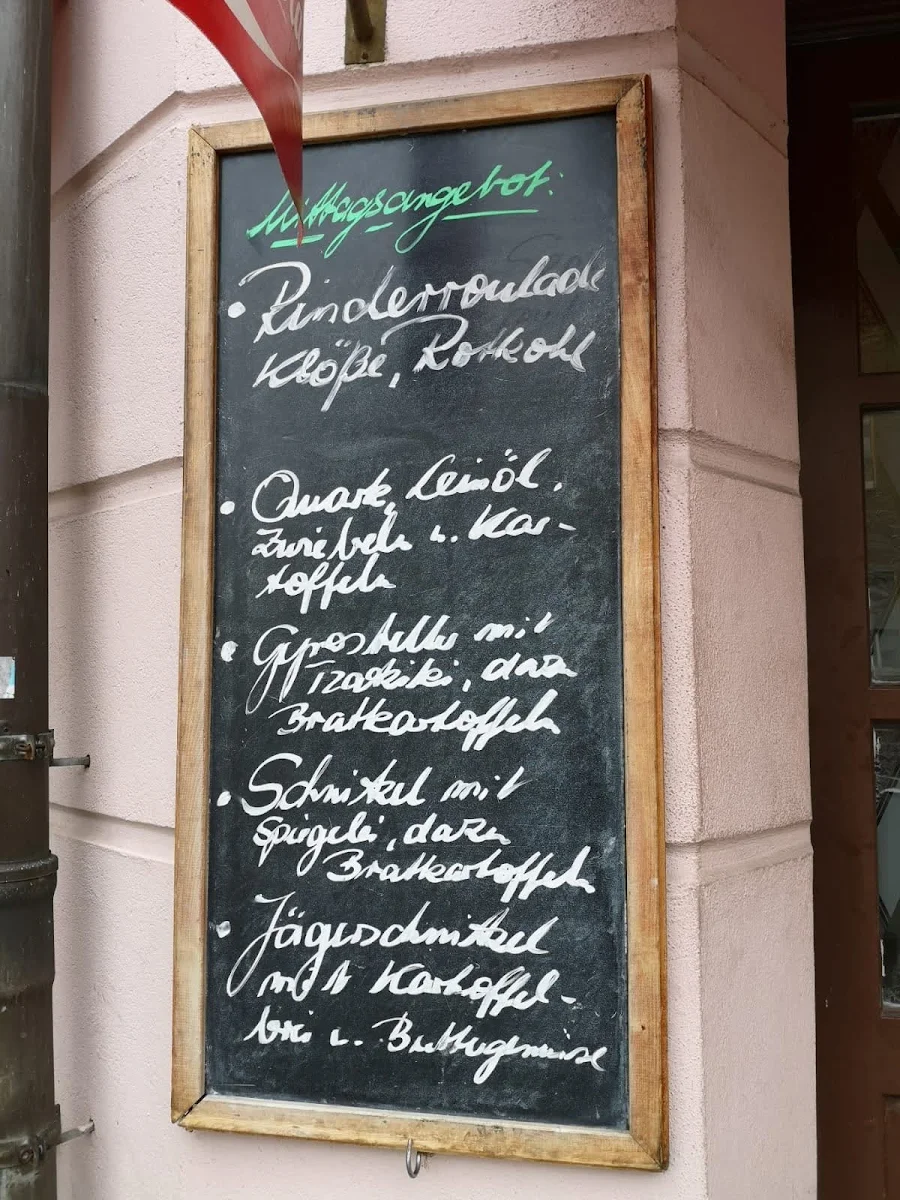 Mittagsangebot:
• Rinderroulade
Klöße, Rotkohl
• Quark, Leinöl,
Zwiebeln u. Kar-
toffeln
• Gyrosteller mit
Tzatziki, dazu
Bratkartoffeln
• Schnitzel mit
Spiegelei, dazu
Bratkartoffeln
• Jägerschnitzel
mit Kartoffel-
brei u. Buttergemüse